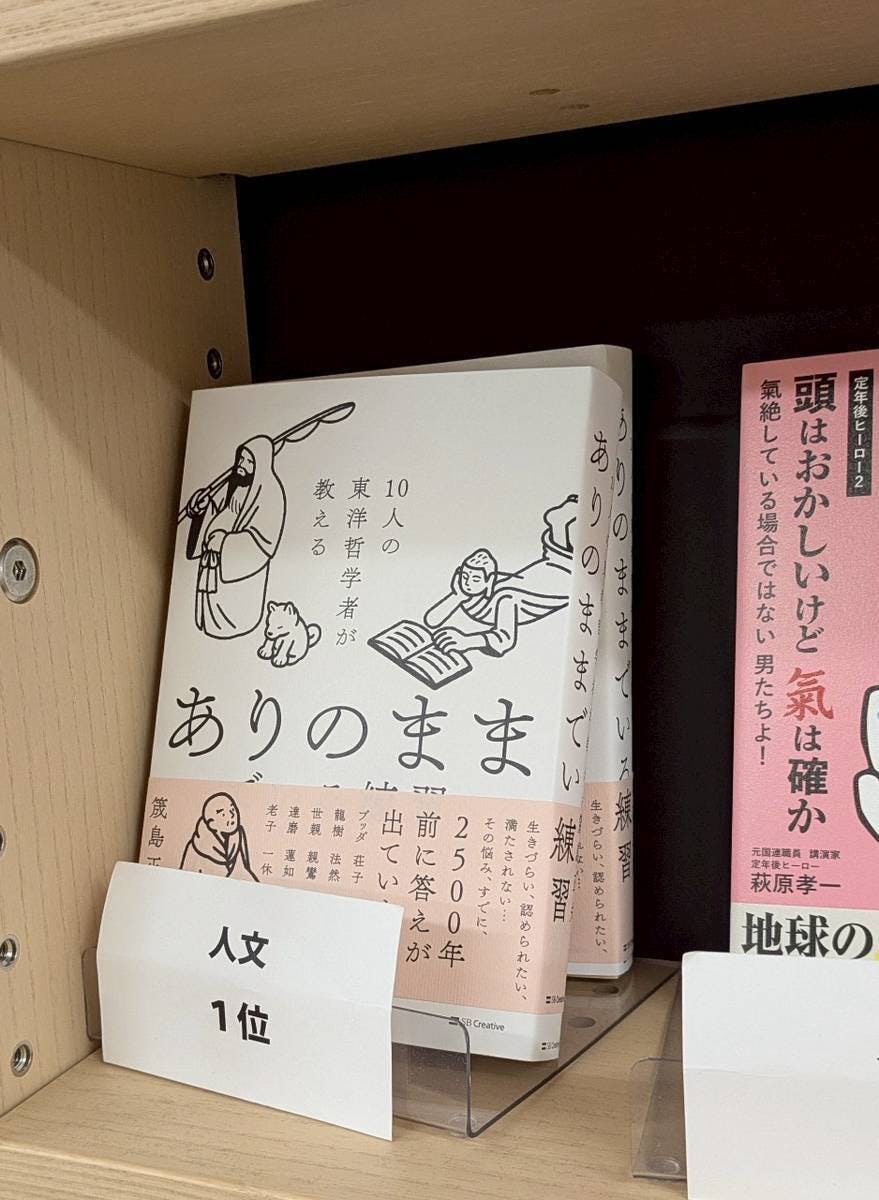 10人の
東洋哲学者が
教える
ありのまま
ありのままでい
練習
ありのままでいる練習
生きづらい、認められたい、
満たされない…
その悩み、すでに、
2500年
前に答えが
出てい
ブッダ 荘子
龍樹 法然
世親 親鸞
達磨 蓮如
老子 一休
筬島
SB Creative
生きづらい、認められたい、
人文
1位
定年後ヒーロー2
頭はおかしいけど氣は確か
氣絶している場合ではない 男たちよ!
元国連職員 講演家
定年後ヒーロー
萩原孝一
地球の